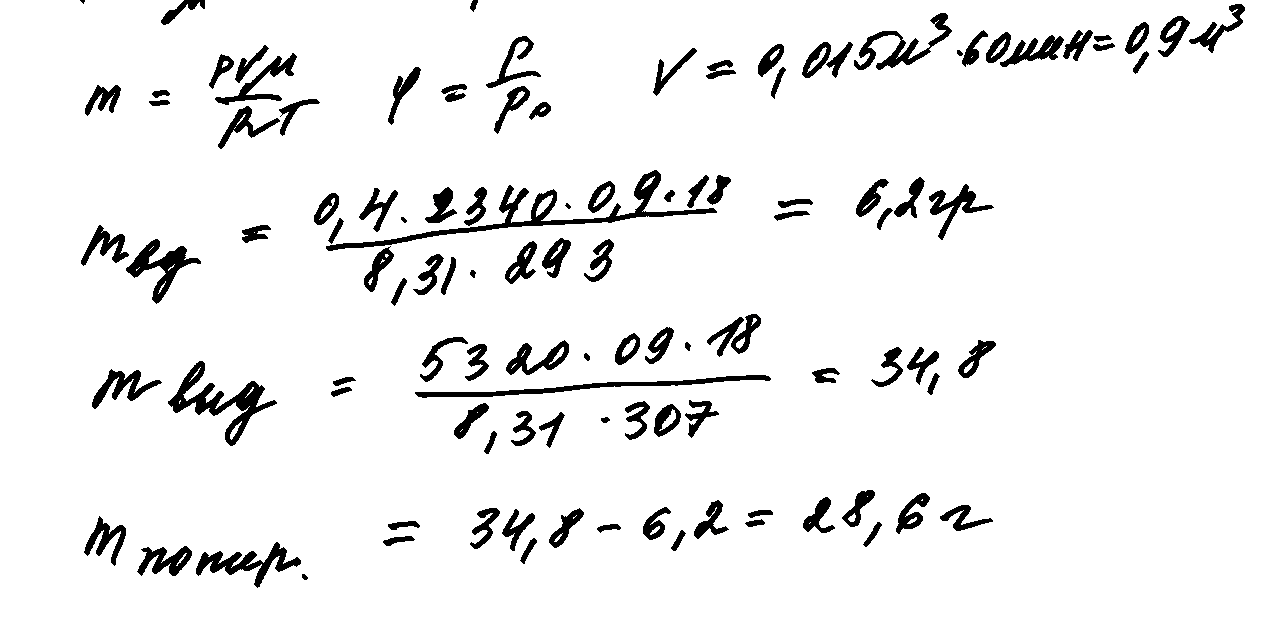 m = pVμ/RT φ = p/p₀ V = 0,015м³·60мин = 0,9м³
m вд = 0,4·2340·0,9·18 / 8,31·293 = 6,2гр
m выд = 5320·09·18 / 8,31·307 = 34,8
m = 34,8 - 6,2 = 28,6 г